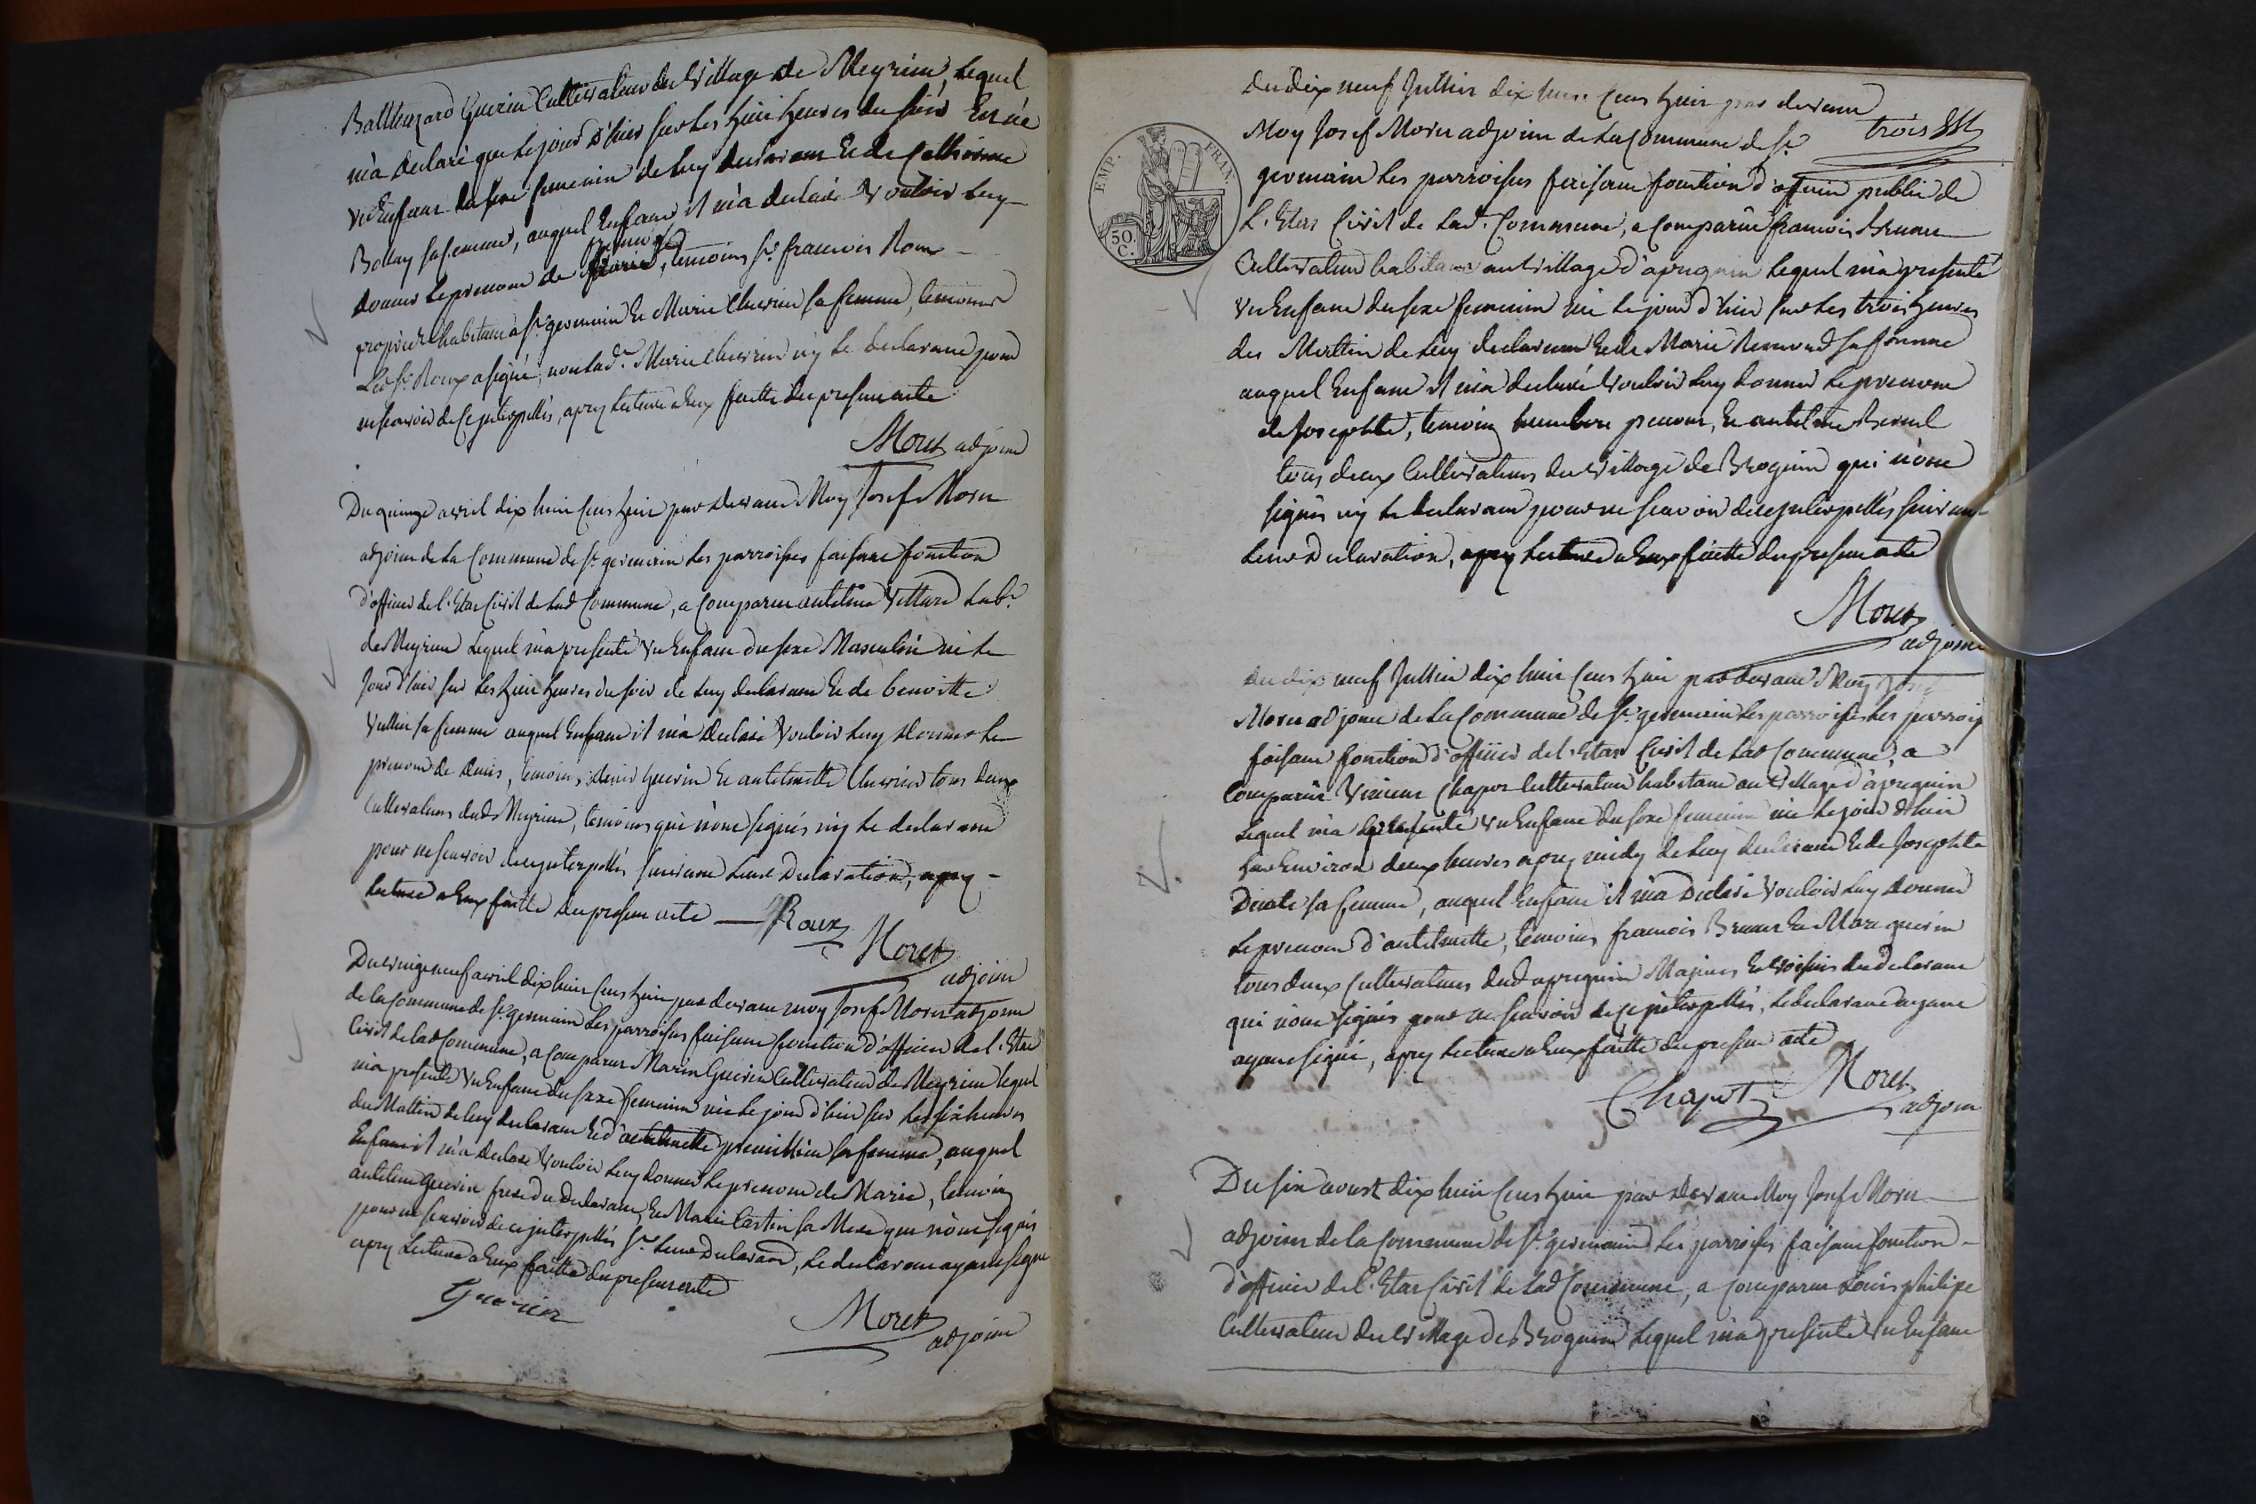 Balthazard Guerin Cultivateur du Village de Meyrieu, lequel
m'a declaré que le jour d'hier sur les huit heures du soir Est né
un Enfant du sexe femenin de luy declarant et de Catherine
Bollay sa femme, auquel Enfant il m'a declaré vouloir luy
donner le prenom de françoise, temoins sr. francois Roux
propriere habitant a st. germain et Marie Cherrier sa femme, temoins
Led sr. Roux a signé, non lad. Marie Cherrier ny le declarant pour
ne scavoir de ce interpellés, apres lecture a Eux faitte du present acte
Moret adjoint
Du quinze avril dix huit cent huit par devant Moy Josef Moret
adjoint de la Commune de st. germain les parroisses faisant fonction
d'officier de l'Etat Civil de lad Commune, a Comparu antelme Vettard labr.
de Meyrieu lequel m'a presenté un Enfant du sexe Masculin né le
Jour d'hier sur les huit heures du soir de luy declarant et de benoitte
Vullier sa femme auquel Enfant il m'a declaré vouloir luy donner le
prenom de denis, temoins denis Guerin et antelmette Cherrier tous deux
Cultivateurs dud Meyrieu, temoins qui n'ont signés ny le declarant
pour ne scavoir de ce interpellés suivant leur Declaration, apres
lecture a Eux faitte du present acte Roux
Moret
adjoint
Du vingt neuf avril dix huit cent huit par devant moy Josef Moret adjoint
de la Commune de st. germain les parroisses faisant fonction d'officier de l'Etat
Civil de lad Commune, a Comparu Marin Guerin Cultivateur de Meyrieu lequel
m'a presenté un Enfant du sexe femenin née le jour d'hier sur les six heures
du Mattin de luy declarant et d'antelmette premillieu sa femme, auquel
Enfant il m'a declaré vouloir luy donner le prenom de Marie, temoins
antelme Guerin frere du declarant, et Marie Castin sa Mere qui n'ont signés
pour ne scavoir de ce interpellés sr. leur Declaraon, le declarant ayant signé
apres lecture a Eux faitte du present acte
Guerin
Moret
adjoint
trois
Du dix neuf Jullier dix huit Cent huit par devant
Moy Josef Moret adjoint de la Commune de st.
germain les parroisses faisant fonction d'officier public de
L'Etat Civil de lad. Commune, a Comparu francois Brunet
Cultivateur habitant au village d'apregnin lequel m'a presenté
un Enfant du sexe femenin né le jour d'hier sur les trois heures
du Mattin de luy declarant et de Marie Remond sa femme
auquel Enfant il m'a declaré vouloir luy donner le prenom
de Josephte, temoins humbert et antelme
tous deux Cultivateurs du village de Brognin qui n'ont
signés ny le declarant pour ne scavoir de ce interpellés suivant
leur Declaration, apres lecture a Eux faitte du present acte
Moret
adjoint
EMP. FRAN.
50
C.
du dix neuf Jullier dix huit Cent huit par devant Moy Josef
Moret adjoint de la Commune de st. germain les parroisses les parrois
faisant fonction d'officier de l'Etat Civil de lad Commune, a
Comparu Vincent Chapot Cultivateur habitant au village d'apregnin
lequel m'a presenté un Enfant du sexe femenin né le jour d'hier
sur Environ deux heures apres midy de luy declarant et de Josephte
sa femme, auquel Enfant il m'a Declaré vouloir luy donner
le prenom d'antelmette, temoins francois Brunet et Marc guerin
tous deux Cultivateurs dud apregnin Majeurs et voisins du declarant
qui n'ont signés pour ne scavoir de ce interpellés, le declarant ayant
ayant signé, apres lecture a Eux faitte du present acte
Chapot Moret
adjoint
Du six aoust dix huit Cent huit par devant Moy Josef Moret
adjoint de la Commune de st. germain les parroisses faisant fonction
d'officier de l'Etat Civil de lad Commune, a Comparu Louis philipe
Cultivateur du village de Brognin lequel m'a presenté un Enfant